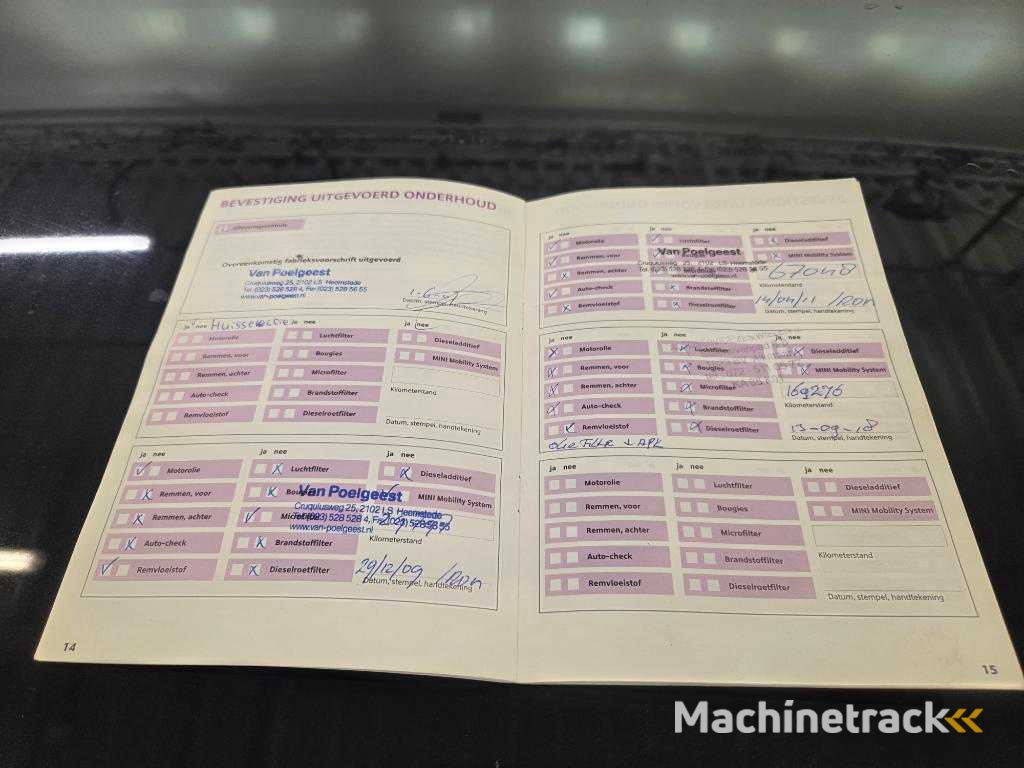 BEVESTIGING UITGEVOERD ONDERHOUD
Overeenkomstig fabrieksvoorschrift uitgevoerd
Van Poelgeest
Cruquiusweg 25, 2102 LS Heemstede
Tel.(023) 528 528 4, Fax (023) 528 56 55
www.van-poelgeest.nl
Datum, stempel, handtekening
ja nee ja nee ja nee
Motorolie Luchtfilter Dieseladditief
Remmen, voor Bougies MINI Mobility System
Remmen, achter Microfilter
Auto-check Brandstoffilter Kilometerstand
Remvloeistof Dieselroetfilter Datum, stempel, handtekening
ja nee ja nee ja nee
Motorolie Luchtfilter Dieseladditief
Remmen, voor Bougies MINI Mobility System
Van Poelgeest
Cruquiusweg 25, 2102 LS Heemstede
Tel.(023) 528 528 4, Fax (023) 528 56 55
www.van-poelgeest.nl
Remmen, achter
Auto-check Brandstoffilter Kilometerstand
Remvloeistof Dieselroetfilter 29/12/09
Datum, stempel, handtekening
14
ja nee ja nee ja nee
Motorolie Luchtfilter Dieseladditief
Remmen, voor MINI Mobility System
Van Poelgeest
Cruquiusweg 25, 2102 LS Heemstede
Remmen, achter 67048
Auto-check Brandstoffilter Kilometerstand
Remvloeistof Dieselroetfilter 14/04/11
Datum, stempel, handtekening
ja nee ja nee ja nee
Motorolie Luchtfilter Dieseladditief
Remmen, voor Bougies MINI Mobility System
Remmen, achter Microfilter 169276
Auto-check Brandstoffilter Kilometerstand
Remvloeistof Dieselroetfilter 13-09-18
Datum, stempel, handtekening
olie Filter + APK
ja nee ja nee ja nee
Motorolie Luchtfilter Dieseladditief
Remmen, voor Bougies MINI Mobility System
Remmen, achter Microfilter
Auto-check Brandstoffilter Kilometerstand
Remvloeistof Dieselroetfilter Datum, stempel, handtekening
15
Machinetrack